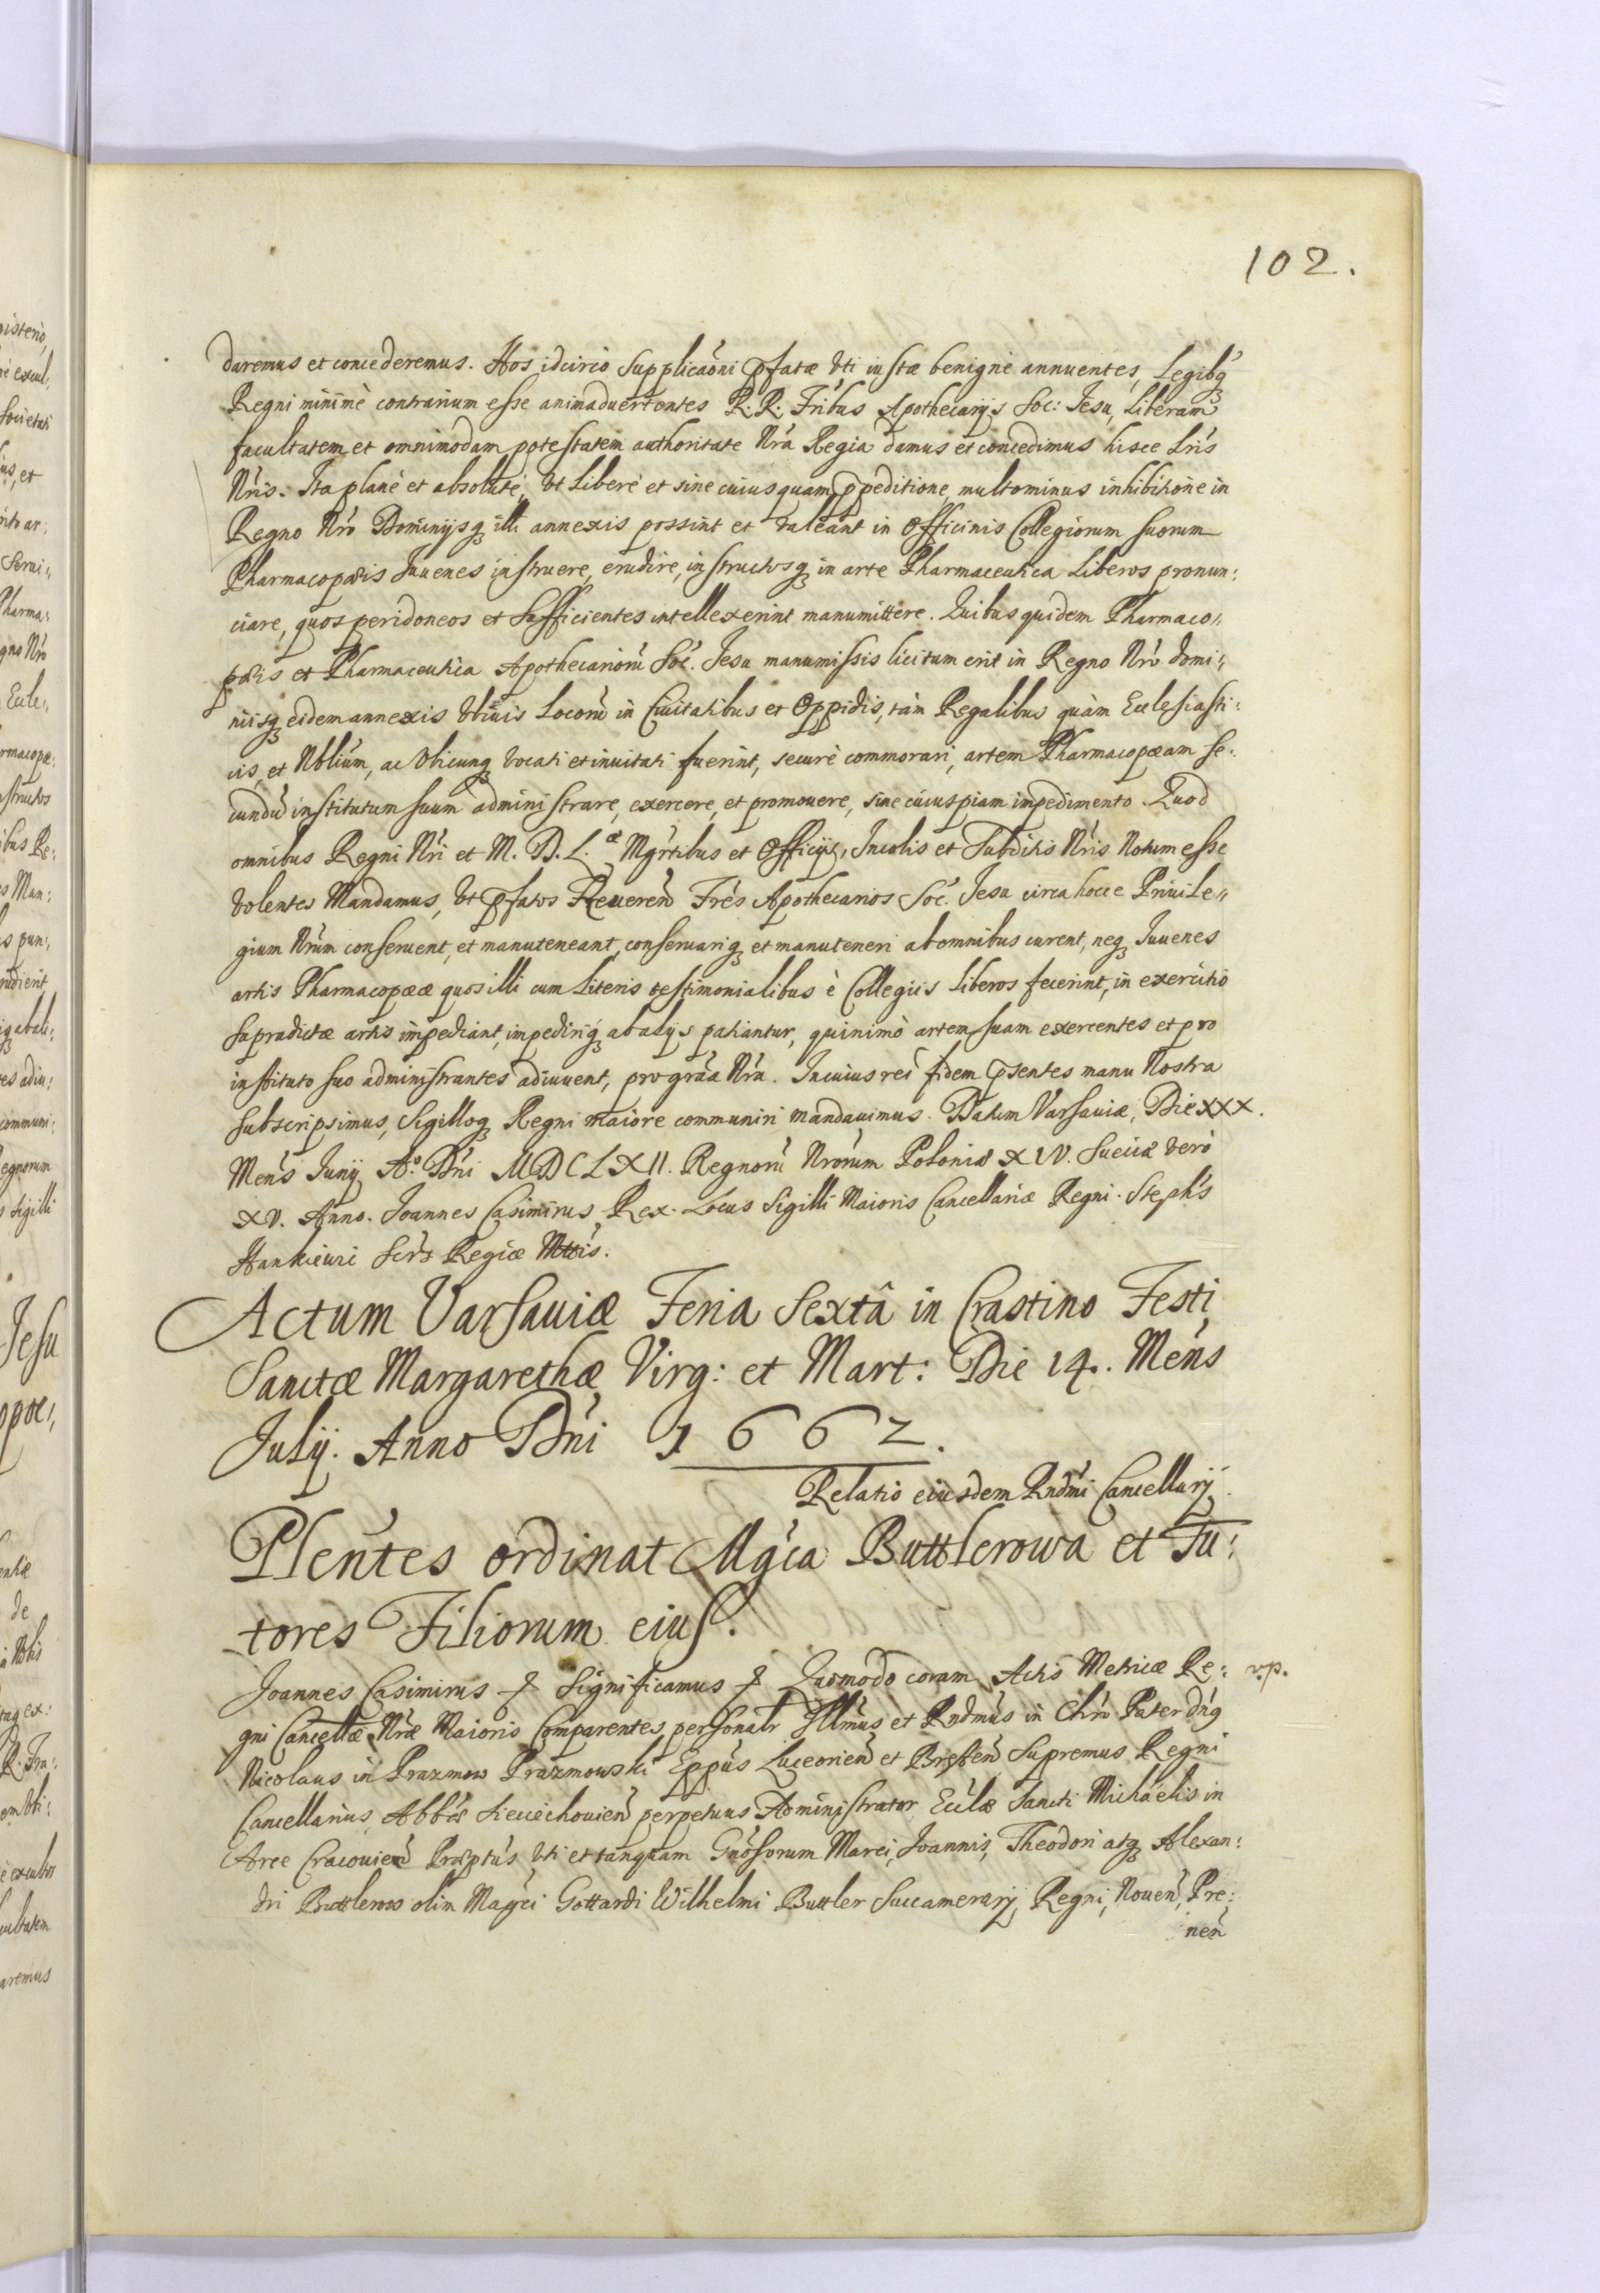 102.
daremus et concederemus. Hos idcirco Supplicaoni pfatæ vti iustæ benigne annuentes, Legibq
Regni minimè contrarium esse animaduertentes R. R. Fribus Apothecarijs Soc: Jesu, Liberam
facultatem et omnimodam potestatem authoritate Nra Regia damus et concedimus hisce Lris
Nris. Ita planè et absolutè, vt Liberè et sine cuiusquam ppeditione, multominus inhibitione in
Regno Nro Dominijsq illi annexis possint et valeant in Officinis Collegiorum suorum
Pharmacopæis Juuenes instruere, erudire, instructosq in arte Pharmaceutica Liberos pronun:
ciare, quos peridoneos et Sufficientes intellexerint manumittere. Quibus quidem Pharmaco,,
pæis et Pharmaceutica Apothecarioru Soc. Jesu manumissis licitum erit in Regno Nro domi,,
nijsq eidem annexis vtiuis Locoru in Ciuitatibus et Oppidis, tàm Regalibus quàm Ecclesiasti:
cis, et Nblium, ac vbicunq vocati et inuitati fuerint, securè commorari, artem Pharmacopæam se:
cundu institutum suum administrare, exercere, et promouere, sine cuiuspiam impedimento. Quod
omnibus Regni Nri et M. D. L. æ Mgrtibus et Officijs, Incolis et Subditis Nris Notum esse
volentes Mandamus, vt pfatos Reueren Frès Apothecarios Soc. Jesu circa hocce Priuile,,
gium Nrum conseruent, et manuteneant, conseruariq et manuteneri ab omnibus curent, neq Juuenes
artis Pharmacopææ quos illi cum Literis testimonialibus è Collegiis Liberos fecerint, in exercitio
supradictæ artis impediant, impediriq ab alijs patiantur, quinimò artem suam exercentes et pro
instituto suo administrantes adiuuent, pro graa Nra. In cuius rei fidem psentes manu Nostra
subscripsimus, Sigilloq Regni maiore communiri mandauimus. Datum Varsauiæ, Die XXX.
Mens Junij Ao. Dni MDCLXII. Regnoru Nrorum Poloniæ XIV. Sueciæ verò
XV. Anno. Joannes Casimirus Rex. Locus Sigilli Maioris Cancellariæ Regni. Stephs
Hankieuri Scrs Regiæ Mttis.
Actum Varsauiæ Feria Sextâ in Crastino Festi
Sanctæ Margarethæ Virg: et Mart: Die 14. Mens
Julij. Anno Dni 1662.
Relatio eiusdem Rndmi Cancellarij.
Plentes ordinat Mgca Buttlerowa et Tu:
tores Filiorum eius.
Joannes Casimirus Significamus Quomodo coram Actis Metricæ Re: v.p.
gni Cancellæ Nræ Maioris Comparentes personalr Illmus et Rndmus in Chro Pater Dnq
Nicolaus in Prazmow Prazmowski Eppus Luceorien et Bresten Supremus Regni
Cancellarius, Abbis Sieciechouien perpetuus Administrator Ecclæ Sancti Michaëlis in
Arce Cracouien Præptus vti et tanquam Gnosorum Marci, Joannis, Theodori atq Alexan:
dri Buttlerow olim Magci Gottardi Wilhelmi Buttler Succamerarij Regni, Nouen, Pre:
nen